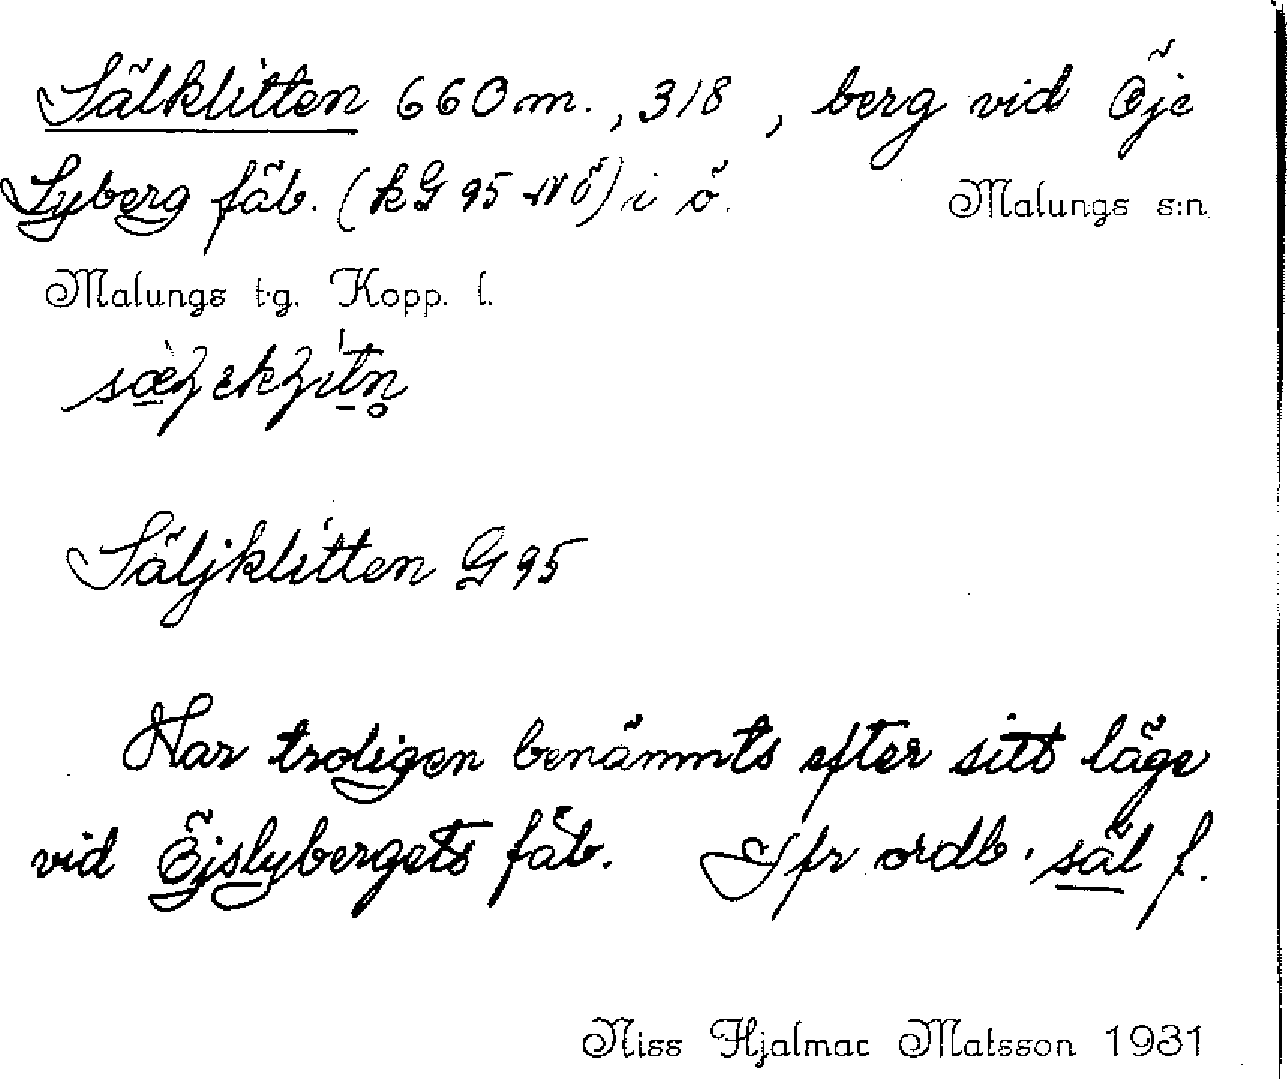 Sälklitten 660 m., 318, berg vid Öje
Lyberg fäb. (kG 95 NÖ) i ö. Malungs s:n
Malungs t.g. Kopp. l.
Säljklitten G 95
Har troligen benämnts efter sitt läge
vid Öjslybergets fäb. Jfr ordb. säl f.
Niss Hjalmar Matsson 1931